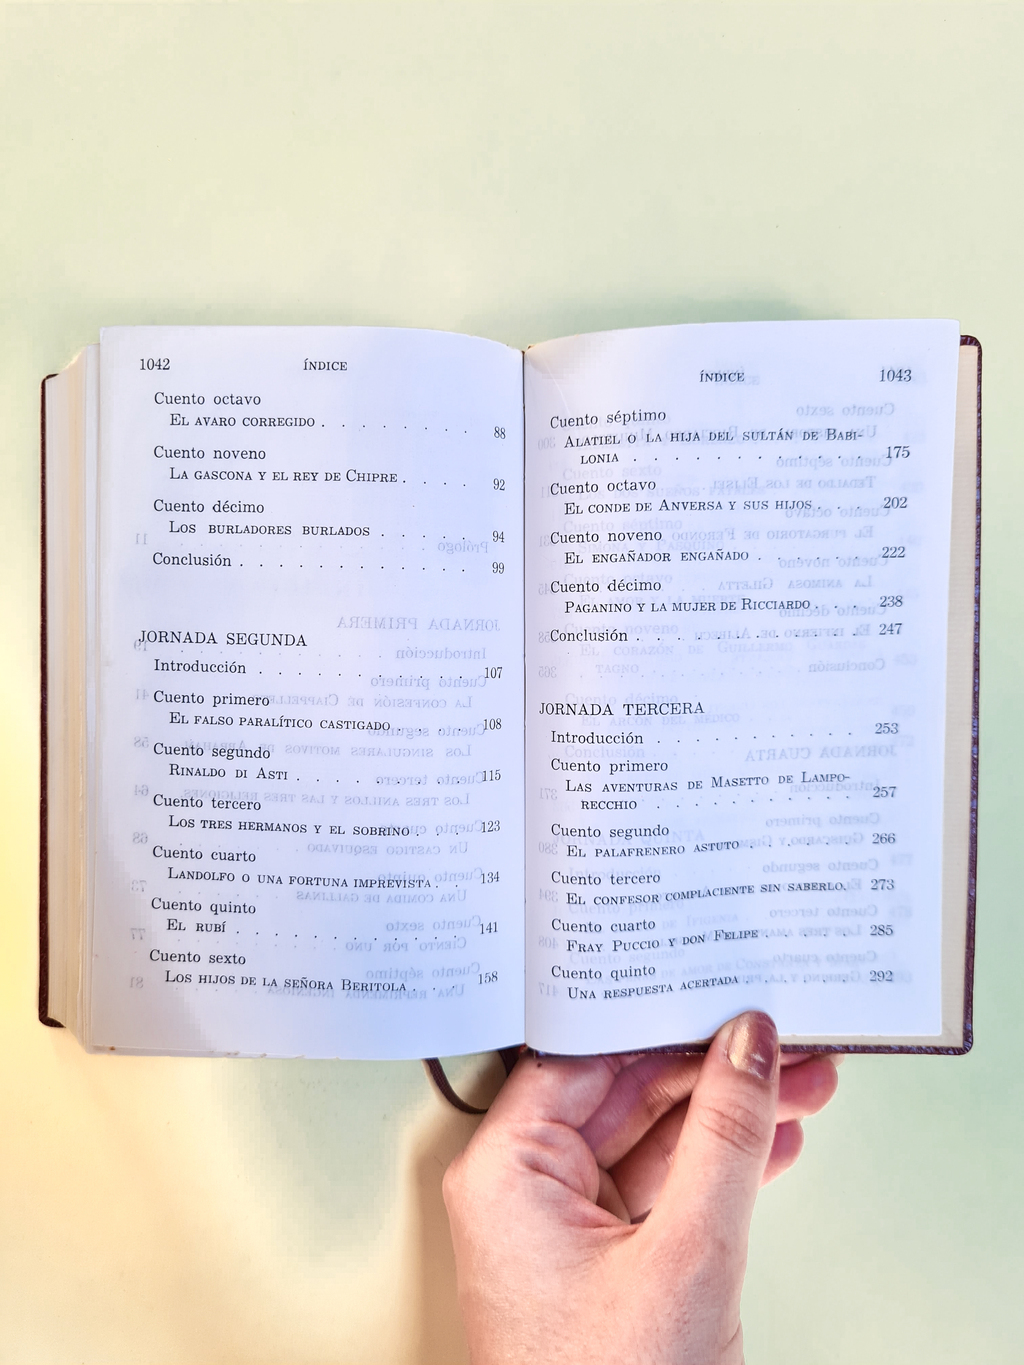 1042 ÍNDICE
Cuento octavo
El avaro corregido . . . . . . . . 88
Cuento noveno
La gascona y el rey de Chipre . . . . 92
Cuento décimo
Los burladores burlados . . . . . 94
Conclusión . . . . . . . . . . . . 99
JORNADA SEGUNDA
Introducción . . . . . . . . . . . 107
Cuento primero
El falso paralítico castigado . . . . 108
Cuento segundo
Rinaldo di Asti . . . . . . . . . 115
Cuento tercero
Los tres hermanos y el sobrino . . . . 123
Cuento cuarto
Landolfo o una fortuna imprevista . . 134
Cuento quinto
El rubí . . . . . . . . . . . . 141
Cuento sexto
Los hijos de la señora Beritola . . . 158
ÍNDICE 1043
Cuento séptimo
Alatiel o la hija del sultán de Babi-
lonia . . . . . . . . . . . . 175
Cuento octavo
El conde de Anversa y sus hijos . . . 202
Cuento noveno
El engañador engañado . . . . . . 222
Cuento décimo
Paganino y la mujer de Ricciardo . . . 238
Conclusión . . . . . . . . . . . 247
JORNADA TERCERA
Introducción . . . . . . . . . . 253
Cuento primero
Las aventuras de Masetto de Lampo-
recchio . . . . . . . . . . . 257
Cuento segundo
El palafrenero astuto . . . . . . 266
Cuento tercero
El confesor complaciente sin saberlo . 273
Cuento cuarto
Fray Puccio y don Felipe . . . . . 285
Cuento quinto
Una respuesta acertada . . . . . . 292